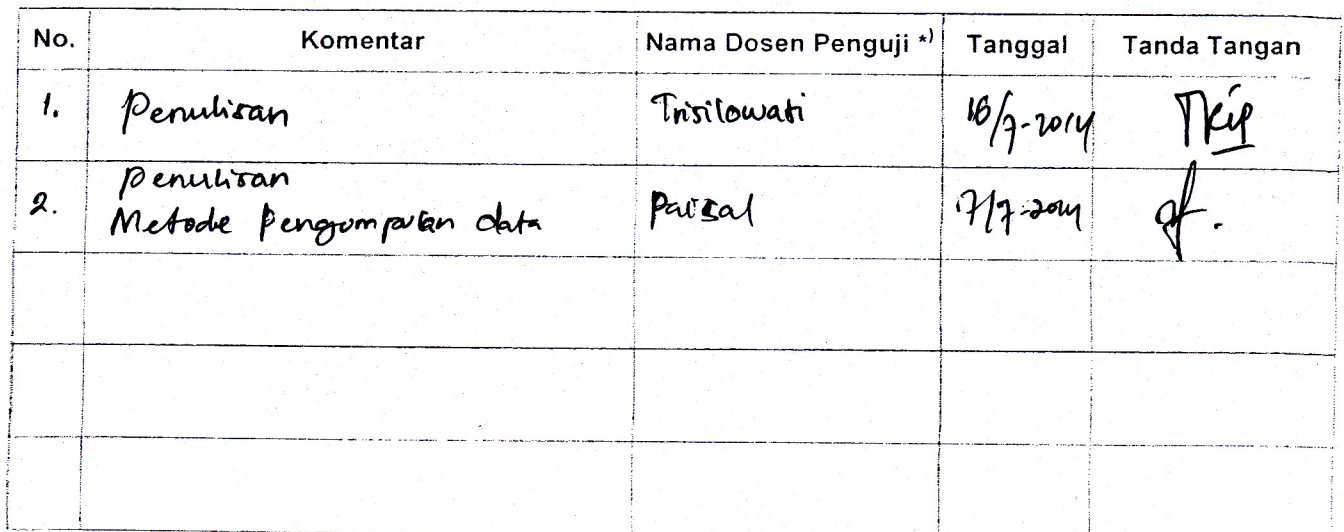 No. Komentar Nama Dosen Penguji *) Tanggal Tanda Tangan
1. Penulisan Trisilowati 16/7-2014
Penulisan
2. Metode Pengumpulan data Paisal 7/7-2014